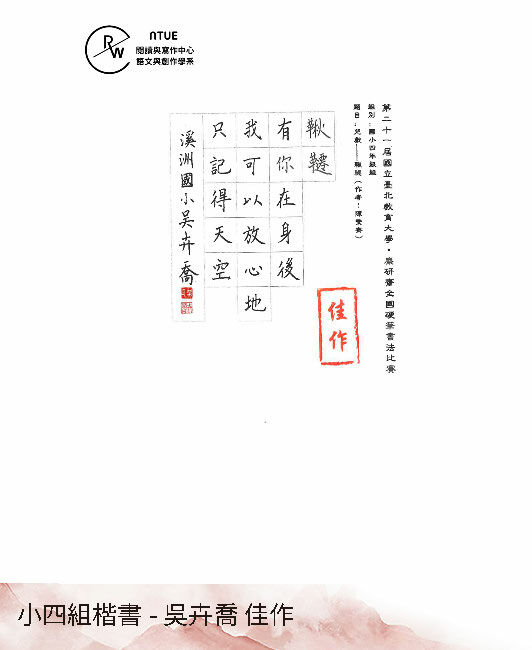 RW
NTUE
閱讀與寫作中心
語文與創作學系
第二十一屆國立臺北教育大學・麋研齋全國硬筆書法比賽
組別：國小四年級組
題目：兒歌——鞦韆（作者：陳素宜）
鞦韆
有你在身後
我可以放心地
只記得天空
溪洲國小吳卉喬
佳作
小四組楷書 - 吳卉喬 佳作